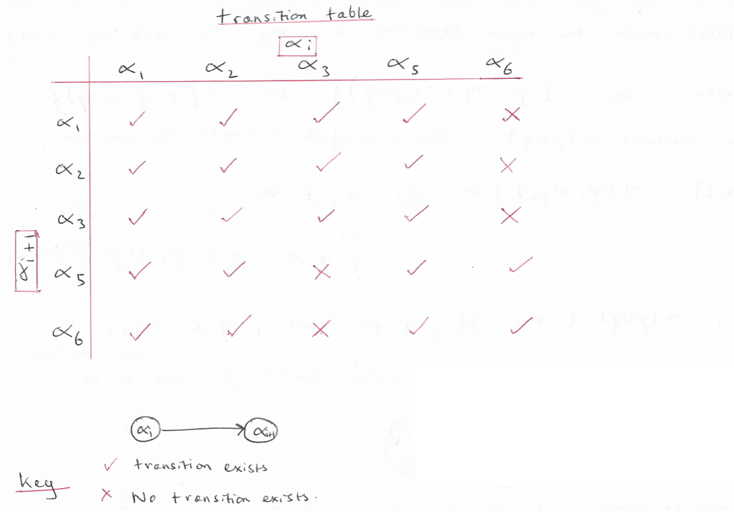 transition table
αi
α1 α2 α3 α5 α6
α1 ✓ ✓ ✓ ✓ ✗
α2 ✓ ✓ ✓ ✓ ✗
α3 ✓ ✓ ✓ ✓ ✗
αi+1
α5 ✓ ✓ ✗ ✓ ✓
α6 ✓ ✓ ✗ ✓ ✓
αi αi+1
✓ transition exists
Key
✗ No transition exists.